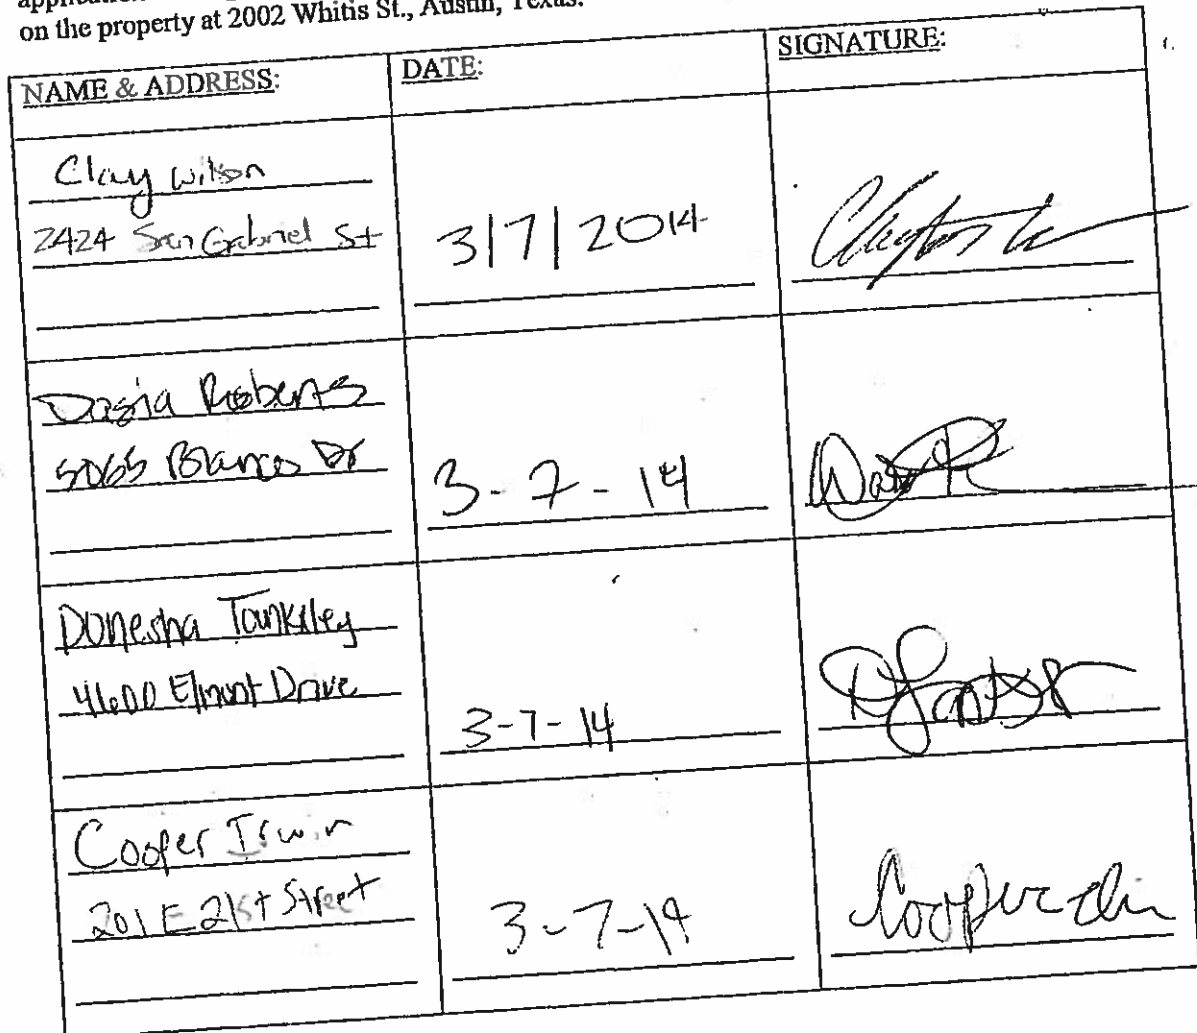 on the property at 2002 Whitis St., Austin, Texas.
NAME & ADDRESS: DATE: SIGNATURE:
Clay Wilson
2424 San Gabriel St 3/7/2014
Dasia Roberts
5065 Blanco Dr 3-7-14
Donesha Tanksley
4600 Elmont Drive 3-7-14
Cooper Irwin
201 E 21st Street 3-7-14